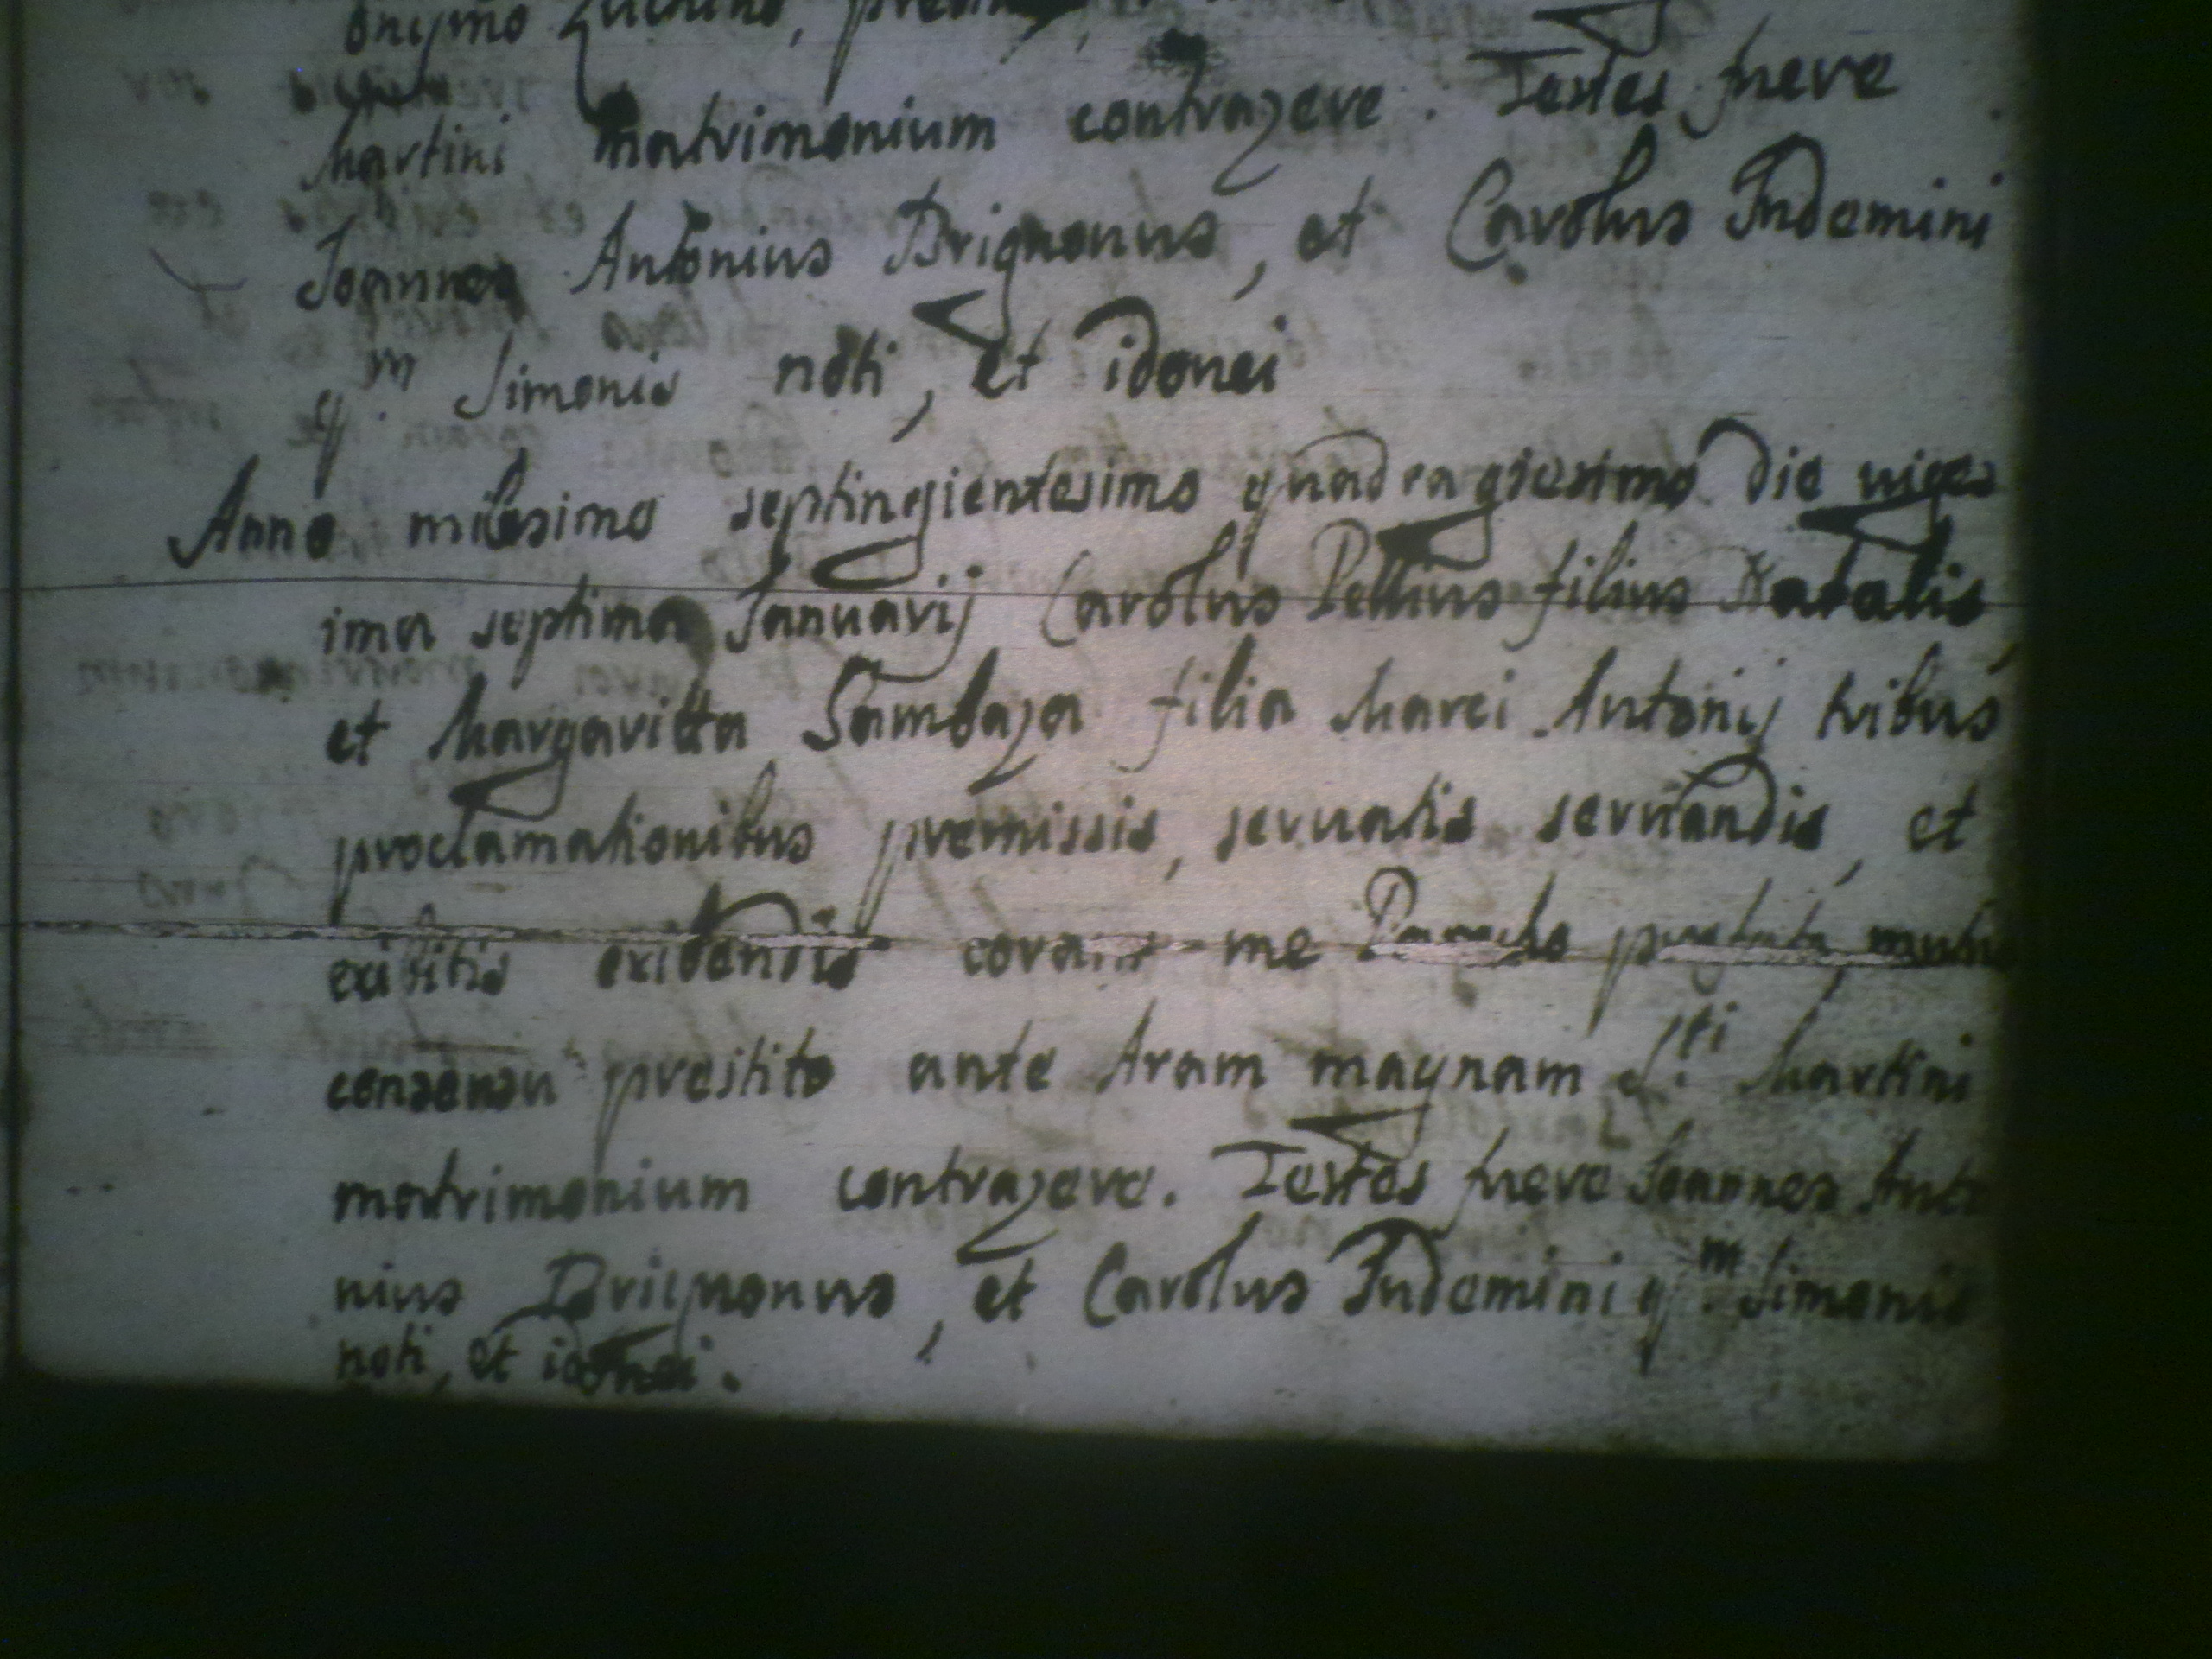 onymo
Martini matrimonium contraxere. Testes fuere
Joannes Antonius Brignonus, et Carolus Indemini
q.m Simonis noti, et idonei
Anno milesimo septingientesimo quadragiesimo die uiges
ima septima Januarij Carolus Pellius filius Natalis
et Margaritta Sambaza filia Marci Antonij tribus
proclamationibus premissis, seruatis seruandis, et
exibitis exibendis coram me Parocho mutuo
consensu prestito ante Aram magnam S.ti Martini
matrimonium contraxere. Testes fuere Joannes Anto
nius Brignonus, et Carolus Indemini q.m Simonis
noti, et idonei.